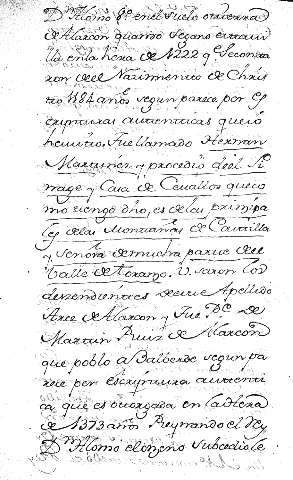 Dn Alonso 8º en el suelo otra
de Alarcon quando se gano
lla en la hera de 1222 q se conta
ron de el Nazimiento de Chris
to 1184 años segun pareze por es
cripturas autenticas que io
he visto. fue llamado Hernan
Martinez y prozedio del Li
nage y Casa de Cevallos que co
mo tengo dho, es de las prinzipa
les de las Montañas de Castilla
y Señora de mucha parte de el
Valle de toranzo. Usaron los
deszendientes de este Apellido
Arze de Alarcon y fue Pe de
Martin Ruiz de Alarcon
que poblo a Balberde segun pa
reze por escriptura autenti
ca que es otorgada en la hera
de 1373 años Reynando el Rey
Dn Alonso el onzeno subcediole